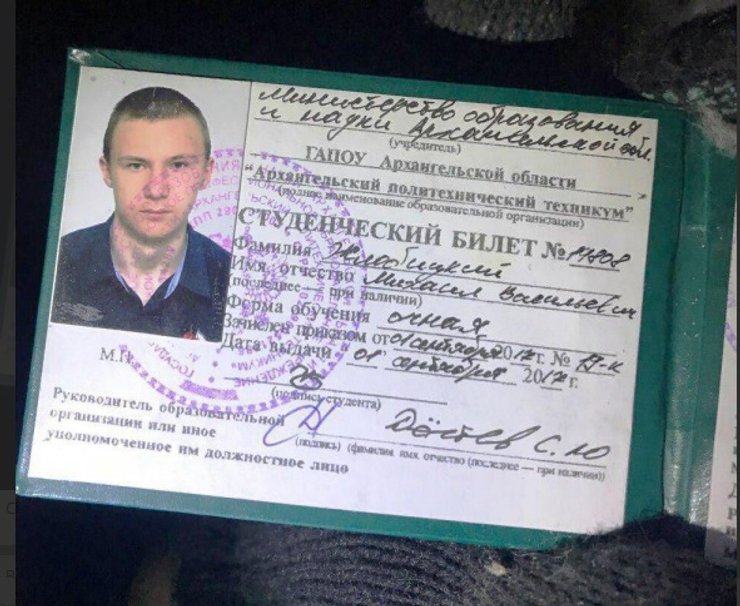 Министерство образования
и науки Архангельской обл.
(учредитель)
ГАПОУ Архангельской области
"Архангельский политехнический техникум"
(полное наименование образовательной организации)
СТУДЕНЧЕСКИЙ БИЛЕТ № 17808
Фамилия Жлобицкий
Имя, отчество Михаил Васильевич
(последнее — при наличии)
Форма обучения очная
Зачислен приказом от 01 сентября 2017 г. №
Дата выдачи 01 сентября 2017 г.
М.П.
(подпись студента)
Руководитель образовательной
организации или иное
уполномоченное им должностное лицо
С.Ю
(подпись) (фамилия, имя, отчество (последнее — при наличии))